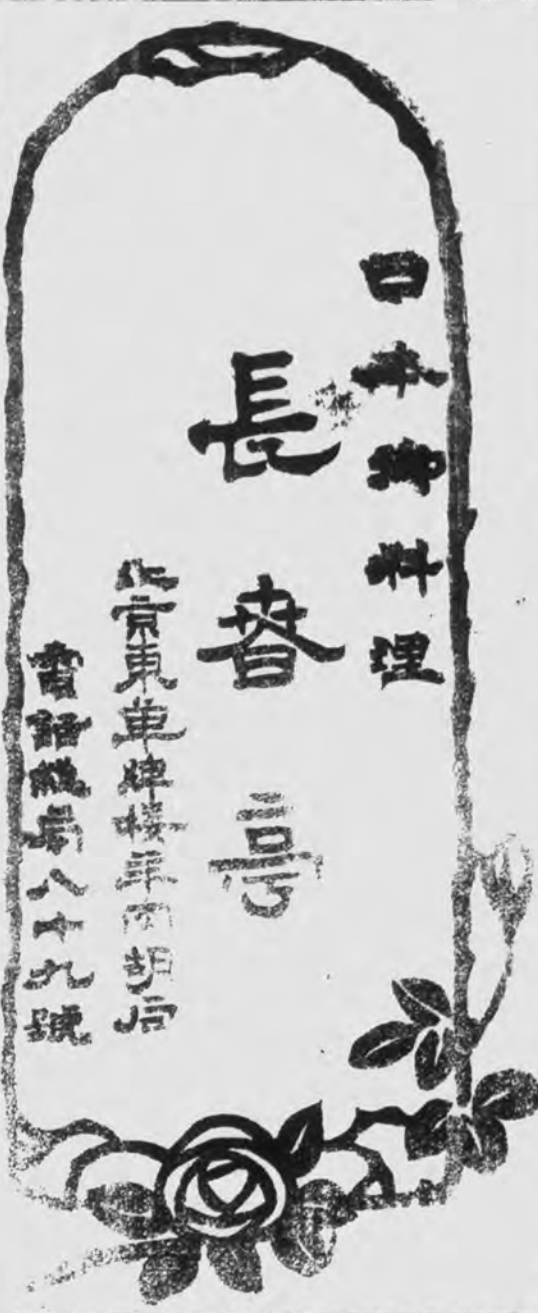 日本御料理
長春亭
北京東單牌楼三条胡同
電話　局八十九號